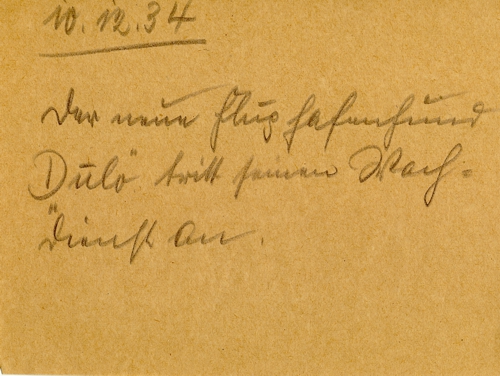 10.12.34
Der neue Flughafenhund
Dulö tritt seinen Wach-
dienst an.